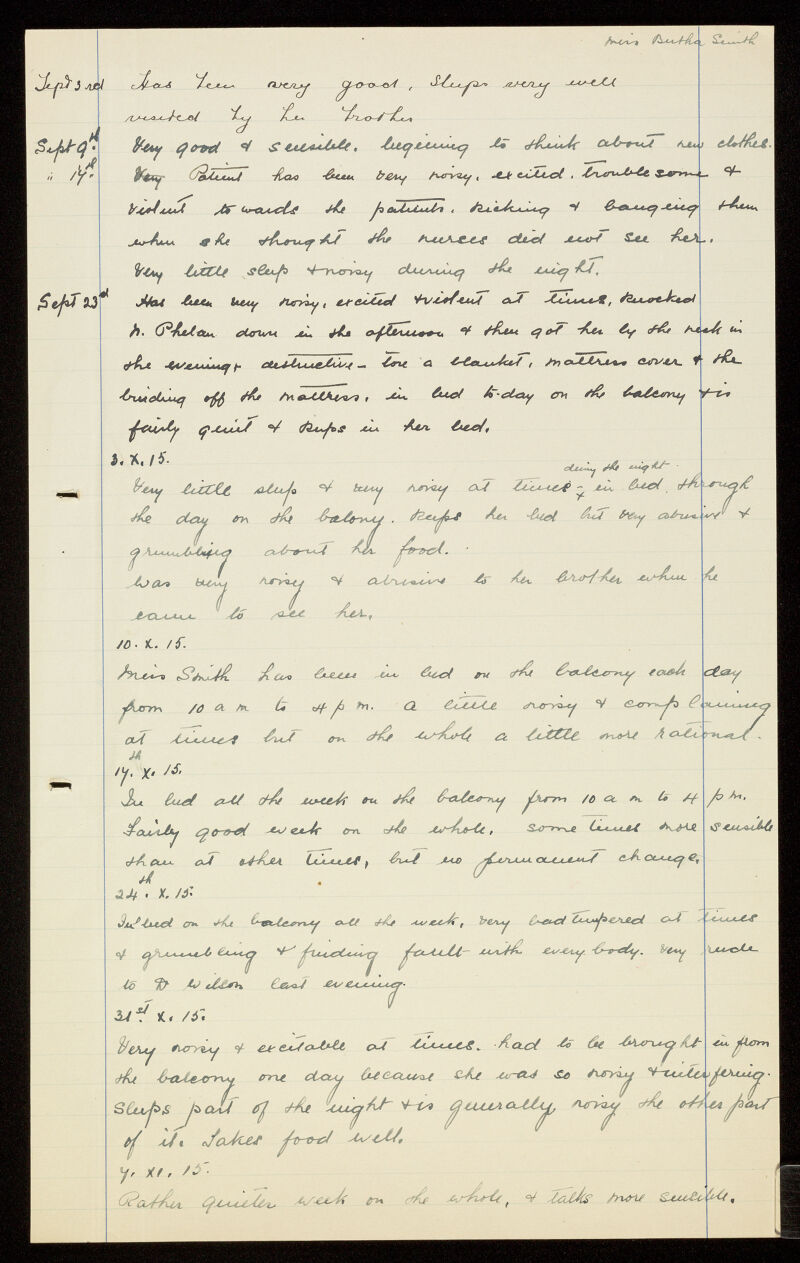 Miss Bertha Smith
Sept 3rd Has been very good, sleeps very well
visited by her brother
Sept 9th. Very good & sensible. begining to think about new clothes.
" 17th. Very Patient has been very noisy, excited, troublesome &
violent towards the patients. kicking & banging them
when she thought the nurses did not see her.
Very little sleep & noisy during the night.
Sept 23rd Has been very noisy, excited & violent at times, knocked
N. Phelan down in the afternoon & then got her by the neck in
the evening, destructive - tore a blanket, mattress cover & the
binding off the mattress. in bed to-day on the balcony & is
fairly quiet & keeps in her bed.
3. X. 15.
during the night.
Very little sleep & very noisy at times - & in bed through
the day on the balony. keeps her bed but very abusive &
grumbling about her food.
Was very noisy & abusive to her brother when he
came to see her.
10. X. 15.
Miss Smith has been in bed on the balcony each day
from 10 a m to 4 p m. a little noisy & complaining
at times but on the whole a little more rational.
17.th X. 15.
In bed all the week on the balcony from 10 a m to 4 p m.
Fairly good week on the whole. sometimes more sensible
than at other times, but no permanent change.
24th. X. 15.
In bed on the balcony all the week, very bad tempered at times
& grumbling & finding fault with every body. very rude
to Dr Wilson last evening.
31st. X. 15.
Very noisy & excitable at times. had to be brought in from
the balcony one day because she was so noisy & interfering.
Sleeps part of the night & is generally noisy the other part
of it. Takes food well.
7. XI. 15.
Rather quieter week on the whole, & talks more sensible.